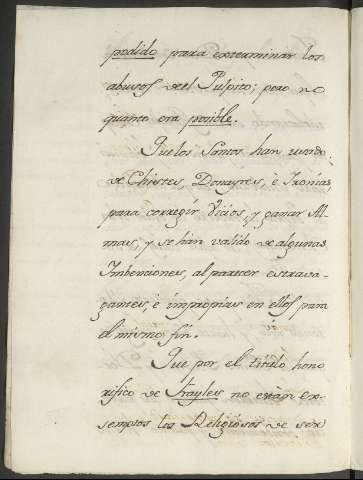 podido para exterminar los
abusos del Pulpito; pero no
quanto era posible.
Que los Santos han usado
de Chistes, Donayres, è Ironías,
para corregir Vicios, y ganar Al-
mas, y se han valido de algunas
Imbenciones, al parecer estrava-
gantes, è impropias en ellos para
el mismo fin.
Que por el titulo hono
rifico de Frayles no están ex-
semptos los Religiosos de ser